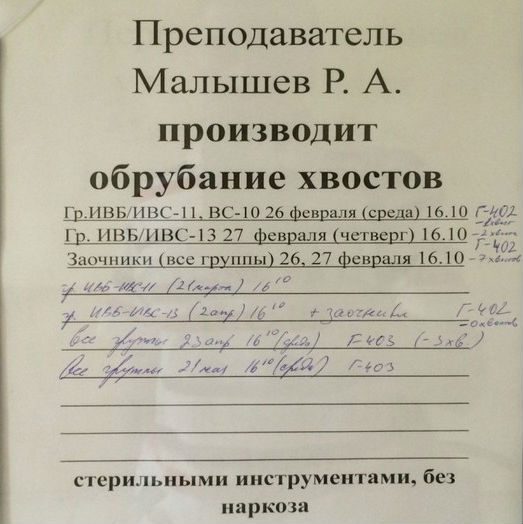 Преподаватель
Малышев Р. А.
производит
обрубание хвостов
Гр.ИВБ/ИВС-11, ВС-10 26 февраля (среда) 16.10 Г-402
Гр. ИВБ/ИВС-13 27 февраля (четверг) 16.10 -2 хвоста
Г-402
Заочники (все группы) 26, 27 февраля 16.10 -7 хвостов
гр. ИВБ-ИВС-11 (21 марта) 16 10
гр. ИВБ-ИВС-13 (2 апр) 16 10 + заочники Г-402
-0 хвостов
Все группы 23 апр 16 10 (среда) Г-403 (-3 хв.)
Все группы 21 мая 16 10 (среда) Г-403
стерильными инструментами, без
наркоза